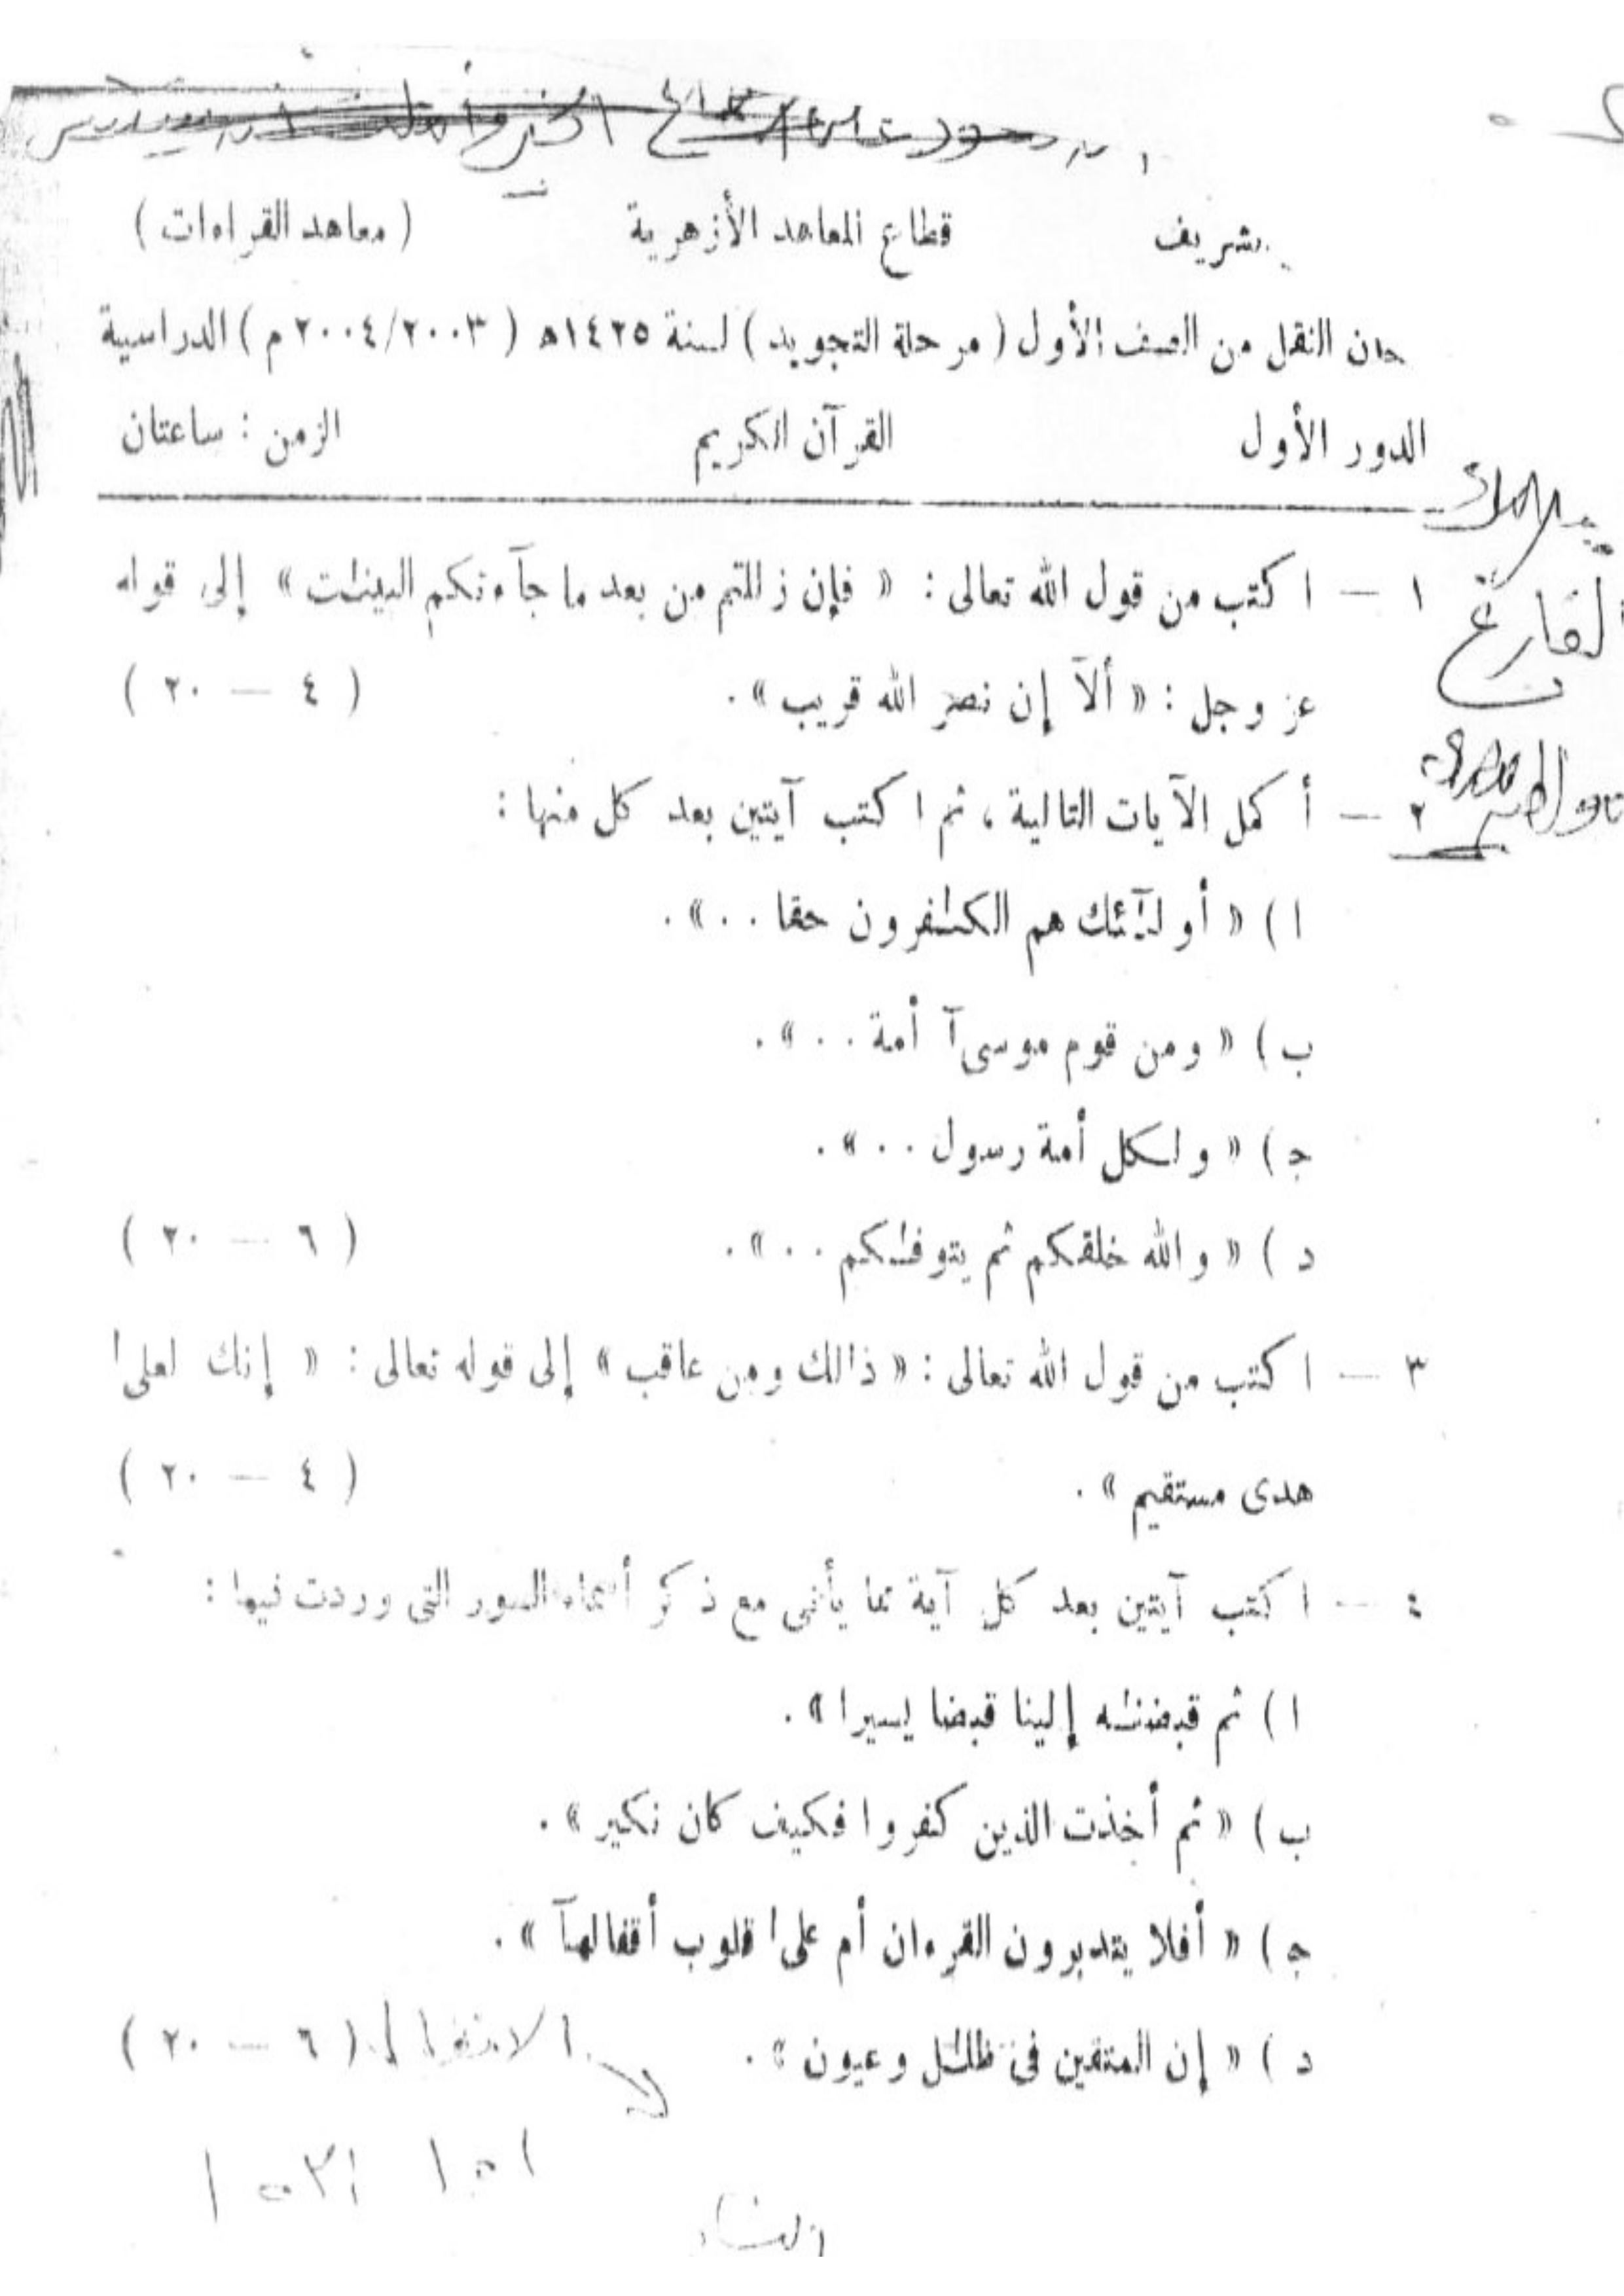 شريف قطاع المعاهد الأزهرية ( معاهد القراءات )
حان النقل من الصف الأول ( مرحلة التجويد ) لسنة ١٤٢٥ه ( ٢٠٠٤/٢٠٠٣ م ) الدراسية
الدور الأول القرآن الكريم الزمن : ساعتان
١ — اكتب من قول الله تعالى : « فإن زللتم من بعد ما جآءتكم البينٰت » إلى قوله
الفارغ
عز وجل : « ألآ إن نصر الله قريب » . ( ٤ — ٢٠ )
٢ — أكمل الآيات التالية ، ثم اكتب آيتين بعد كل منها :
ا ) « أولٰٓئك هم الكٰفرون حقا . . » .
ب ) « ومن قوم موسىٰٓ أمة . . » .
ج ) « ولكل أمة رسول . . » .
د ) « والله خلقكم ثم يتوفىٰكم . . » . ( ٦ — ٢٠ )
٣ — اكتب من قول الله تعالى : « ذالك ومن عاقب » إلى قوله تعالى : « إنك لعلىٰ
هدى مستقيم » . ( ٤ — ٢٠ )
٤ — اكتب آيتين بعد كل آية مما يأتى مع ذكر أسماء السور التى وردت فيها :
ا ) ثم قبضنٰه إلينا قبضا يسيرا » .
ب ) « ثم أخذت الذين كفروا فكيف كان نكير » .
ج ) « أفلا يتدبرون القرءان أم علىٰ قلوب أقفالهآ » .
د ) « إن المتقين فى ظلٰل وعيون » . ( ٦ — ٢٠ )